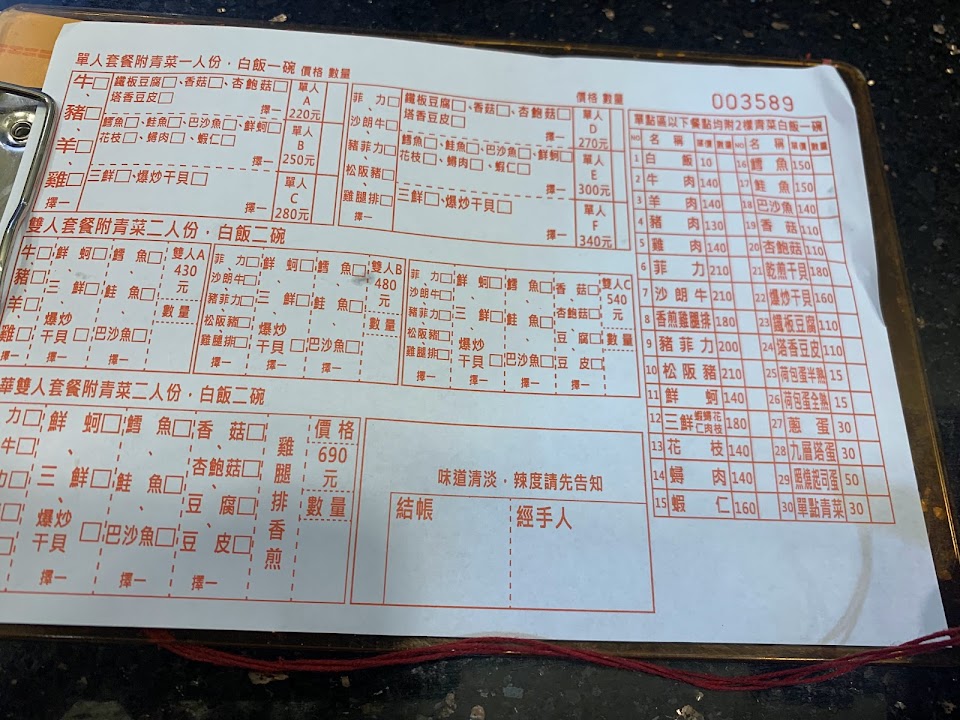 單人套餐附青菜一人份，白飯一碗 價格 數量
牛□、豬□、羊□、雞□ 擇一
鐵板豆腐□、香菇□、杏鮑菇□、塔香豆皮□ 擇一 單人A 220元
鱈魚□、鮭魚□、巴沙魚□、鮮蚵□、花枝□、蟳肉□、蝦仁□ 擇一 單人B 250元
三鮮□、爆炒干貝□ 擇一 單人C 280元
價格 數量
菲力□、沙朗牛□、豬菲力□、松阪豬□、雞腿排□ 擇一
鐵板豆腐□、香菇□、杏鮑菇□、塔香豆皮□ 擇一 單人D 270元
鱈魚□、鮭魚□、巴沙魚□、鮮蚵□、花枝□、蟳肉□、蝦仁□ 擇一 單人E 300元
三鮮□、爆炒干貝□ 擇一 單人F 340元
雙人套餐附青菜二人份，白飯二碗
牛□、豬□、羊□、雞□ 擇一
鮮蚵□、三鮮□、爆炒干貝□ 擇一
鱈魚□、鮭魚□、巴沙魚□ 擇一
雙人A 430元 數量
菲力□、沙朗牛□、豬菲力□、松阪豬□、雞腿排□ 擇一
鮮蚵□、三鮮□、爆炒干貝□ 擇一
鱈魚□、鮭魚□、巴沙魚□ 擇一
雙人B 480元 數量
菲力□、沙朗牛□、豬菲力□、松阪豬□、雞腿排□ 擇一
鮮蚵□、三鮮□、爆炒干貝□ 擇一
鱈魚□、鮭魚□、巴沙魚□ 擇一
香菇□、杏鮑菇□、豆腐□、豆皮□ 擇一
雙人C 540元 數量
華雙人套餐附青菜二人份，白飯二碗
力□
牛□
力□
鮮蚵□、三鮮□、爆炒干貝□ 擇一
鱈魚□、鮭魚□、巴沙魚□ 擇一
香菇□、杏鮑菇□、豆腐□、豆皮□ 擇一
雞腿排香煎
價格 690元 數量
味道清淡，辣度請先告知
結帳 經手人
003589
單點區以下餐點均附2樣青菜白飯一碗
NO 名稱 單價 數量 NO 名稱 單價 數量
1 白飯 10 16 鱈魚 150
2 牛肉 140 17 鮭魚 150
3 羊肉 140 18 巴沙魚 140
4 豬肉 130 19 香菇 110
5 雞肉 140 20 杏鮑菇 110
6 菲力 210 21 乾煎干貝 180
7 沙朗牛 210 22 爆炒干貝 160
8 香煎雞腿排 180 23 鐵板豆腐 110
9 豬菲力 200 24 塔香豆皮 110
10 松阪豬 210 25 荷包蛋半熟 15
11 鮮蚵 140 26 荷包蛋全熟 15
12 三鮮 蝦蟳花仁肉枝 180 27 蔥蛋 30
13 花枝 140 28 九層塔蛋 30
14 蟳肉 140 29 照燒起司蛋 50
15 蝦仁 160 30 單點青菜 30